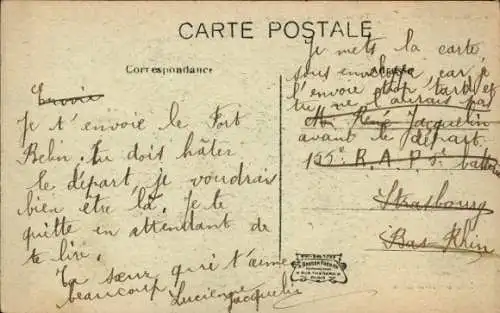 CARTE POSTALE
Correspondance
Envoie
Je t'envoie le Fort
Belin. Tu dois hâter
le départ, je voudrais
bien être là. Je te
quitte en attendant de
te lire.
Ta sœur qui t'aime
beaucoup Lucienne
Jacquelin
Je mets la carte
sous enveloppe car je
l'envoie trop tard et
tu ne l'aurais pas
M. René Jacquelin
avant le départ.
155e R. A. P. 5e batterie
Strasbourg
Bas Rhin